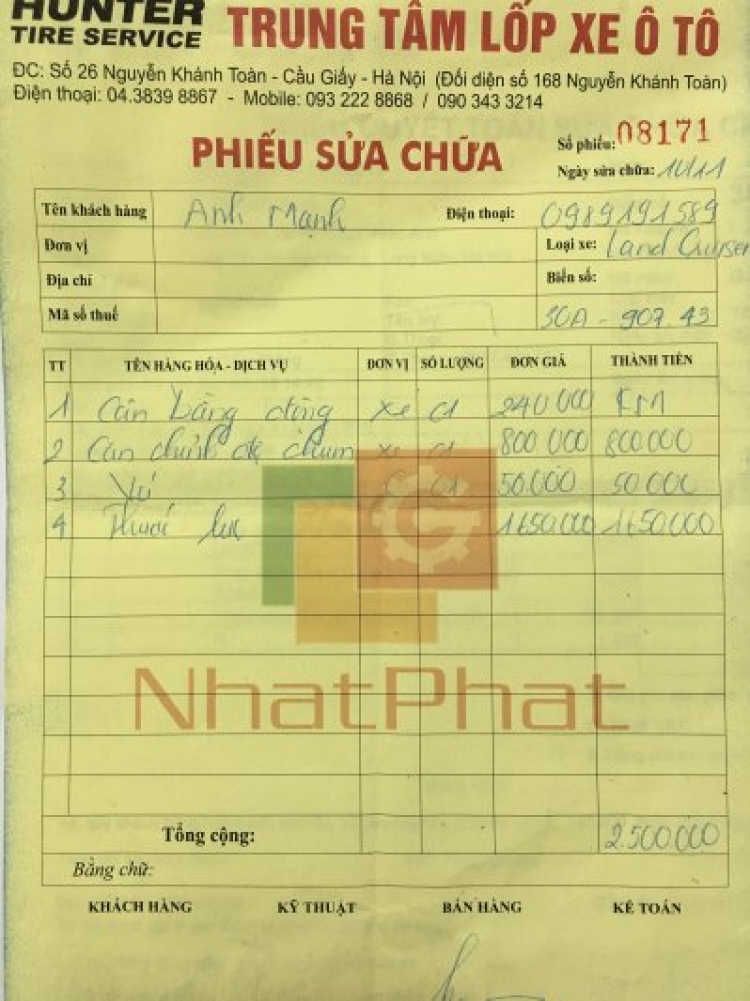 HUNTER
TIRE SERVICE
TRUNG TÂM LỐP XE Ô TÔ
ĐC: Số 26 Nguyễn Khánh Toàn - Cầu Giấy - Hà Nội (Đối diện số 168 Nguyễn Khánh Toàn)
Điện thoại: 04.3839 8867 - Mobile: 093 222 8868 / 090 343 3214
PHIẾU SỬA CHỮA
Số phiếu: 08171
Ngày sửa chữa: 10/11
Tên khách hàng Anh Mạnh Điện thoại: 0989191589
Đơn vị Loại xe: Land Cruiser
Địa chỉ Biển số:
Mã số thuế 30A - 907.43
TT TÊN HÀNG HÓA - DỊCH VỤ ĐƠN VỊ SỐ LƯỢNG ĐƠN GIÁ THÀNH TIỀN
1 Cân bằng động xe 01 240 000 KM
2 Cân chỉnh độ chụm xe 01 800 000 800000
3 01 50.000 50 000
4 1650.000 1650.000
NhatPhat
Tổng cộng: 2.500.000
Bằng chữ:
KHÁCH HÀNG KỸ THUẬT BÁN HÀNG KẾ TOÁN